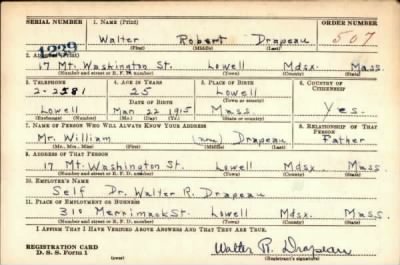 SERIAL NUMBER 1. NAME (Print) ORDER NUMBER
1229 Walter Robert Drapeau 507
(First) (Middle) (Last)
2. ADDRESS (Print)
17 Mt. Washington St. Lowell Mdsx. Mass.
(Number and street or R. F. D. number) (Town) (County) (State)
3. TELEPHONE 4. AGE IN YEARS 5. PLACE OF BIRTH 6. COUNTRY OF CITIZENSHIP
2-2581 25 Lowell
(Town or county)
DATE OF BIRTH
Lowell Mar 22 1915 Mass. Yes.
(Exchange) (Number) (Mo.) (Day) (Yr.) (State or country)
7. NAME OF PERSON WHO WILL ALWAYS KNOW YOUR ADDRESS 8. RELATIONSHIP OF THAT PERSON
Mr. William (none) Drapeau Father
(Mr., Mrs., Miss) (First) (Middle) (Last)
9. ADDRESS OF THAT PERSON
17 Mt. Washington St. Lowell Mdsx. Mass
(Number and street or R. F. D. number) (Town) (County) (State)
10. EMPLOYER'S NAME
Self Dr. Walter R. Drapeau
11. PLACE OF EMPLOYMENT OR BUSINESS
310 Merrimack St. Lowell Mdsx. Mass
(Number and street or R. F. D. number) (Town) (County) (State)
I AFFIRM THAT I HAVE VERIFIED ABOVE ANSWERS AND THAT THEY ARE TRUE.
REGISTRATION CARD
D. S. S. Form 1 (over) Walter R. Drapeau
(Registrant's signature)